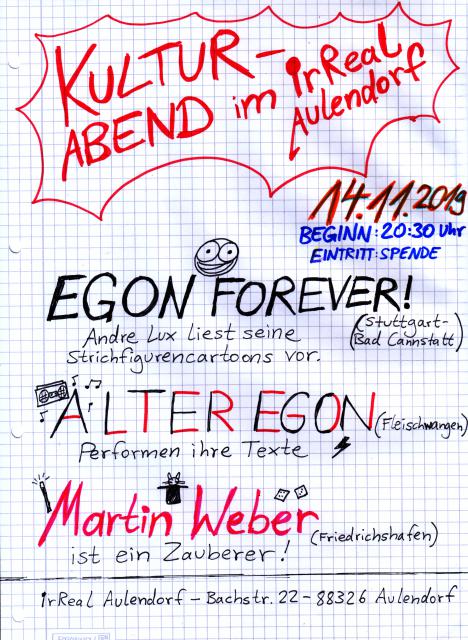 KULTUR-
ABEND im irReal
Aulendorf
14.11.2019
BEGINN: 20:30 Uhr
EINTRITT: SPENDE
EGON FOREVER!
Andre Lux liest seine (Stuttgart-
Strichfigurencartoons vor. Bad Cannstatt)
ALTER EGON (Fleischwangen)
Performen ihre Texte
Martin Weber (Friedrichshafen)
ist ein Zauberer!
irReal Aulendorf - Bachstr. 22 - 88326 Aulendorf